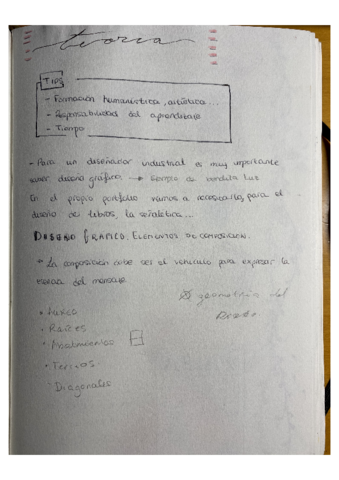 teoría
TIPS
- Formación humanística, artística...
- Responsabilidad del aprendizaje
- Tiempo
- Para un diseñador industrial es muy importante
saber diseño gráfico. → Ejemplo de bendita luz
En el propio portfolio vamos a necesitarlo, para el
diseño de libros, la señalética...
DISEÑO GRÁFICO. ELEMENTOS DE COMPOSICIÓN.
* La composición debe ser el vehículo para expresar la
del mensaje
geometría del
diseño
• Aureo
• Raíces
• Abatimientos
• Tercios
• Diagonales